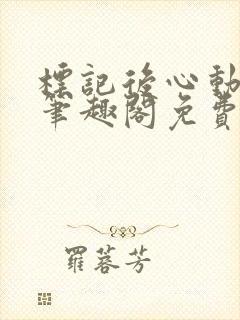 標記後心動
筆趣閣免費
羅蓉芳